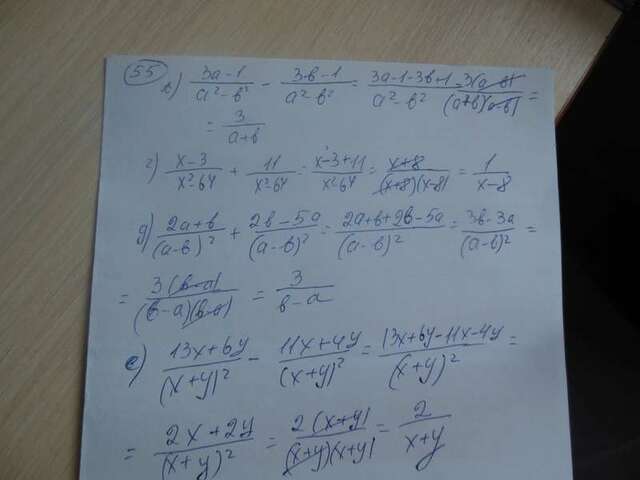 55
в) (3a-1)/(a²-в²) - (3в-1)/(a²-в²) = (3a-1-3в+1)/(a²-в²) = 3(a-в)/((a+в)(a-в)) =
= 3/(a+в)
г) (x-3)/(x²-64) + 11/(x²-64) = (x-3+11)/(x²-64) = (x+8)/((x+8)(x-8)) = 1/(x-8)
д) (2a+в)/(a-в)² + (2в-5a)/(a-в)² = (2a+в+2в-5a)/(a-в)² = (3в-3a)/(a-в)² =
= 3(в-a)/((в-a)(в-a)) = 3/(в-a)
е) (13x+6y)/(x+y)² - (11x+4y)/(x+y)² = (13x+6y-11x-4y)/(x+y)² =
= (2x+2y)/(x+y)² = 2(x+y)/((x+y)(x+y)) = 2/(x+y)